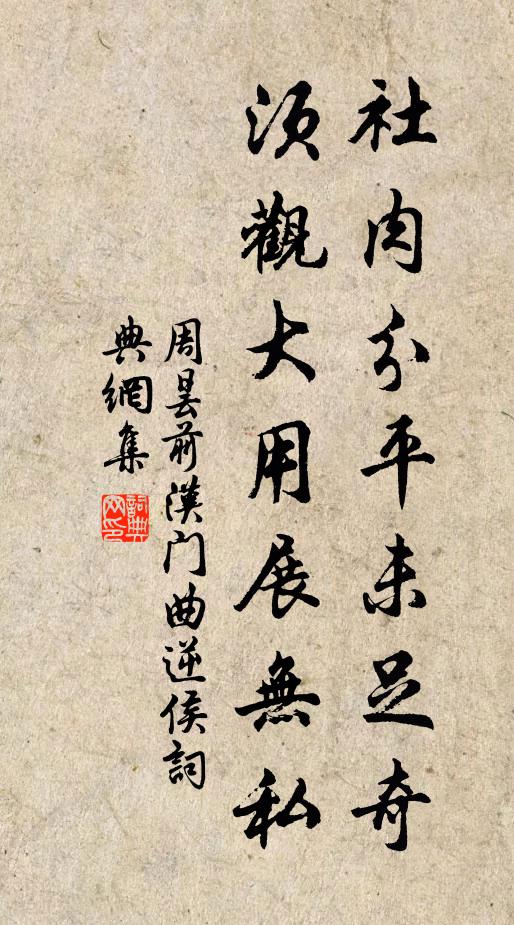 社肉分平未足奇
須觀大用展無私
周曇前漢门曲逆侯詞
典網集
詞典网印